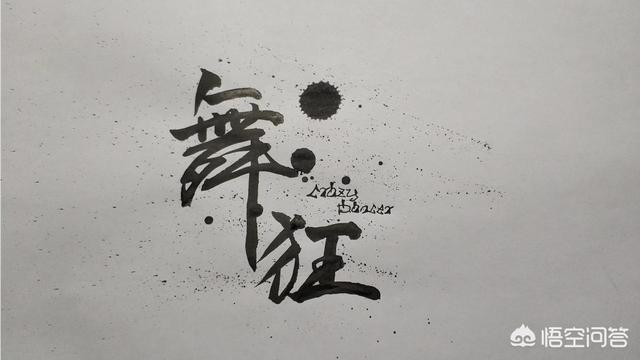 舞狂
crazy
dancer
悟空问答